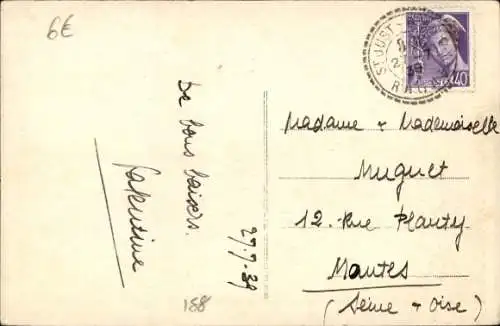 6€
De bons baisers.
Valentine
27.7.39
188
ST JUST
39
40
Madame & Mademoiselle
Muguet
12. Rue Plauty
Mantes
(Seine & Oise)